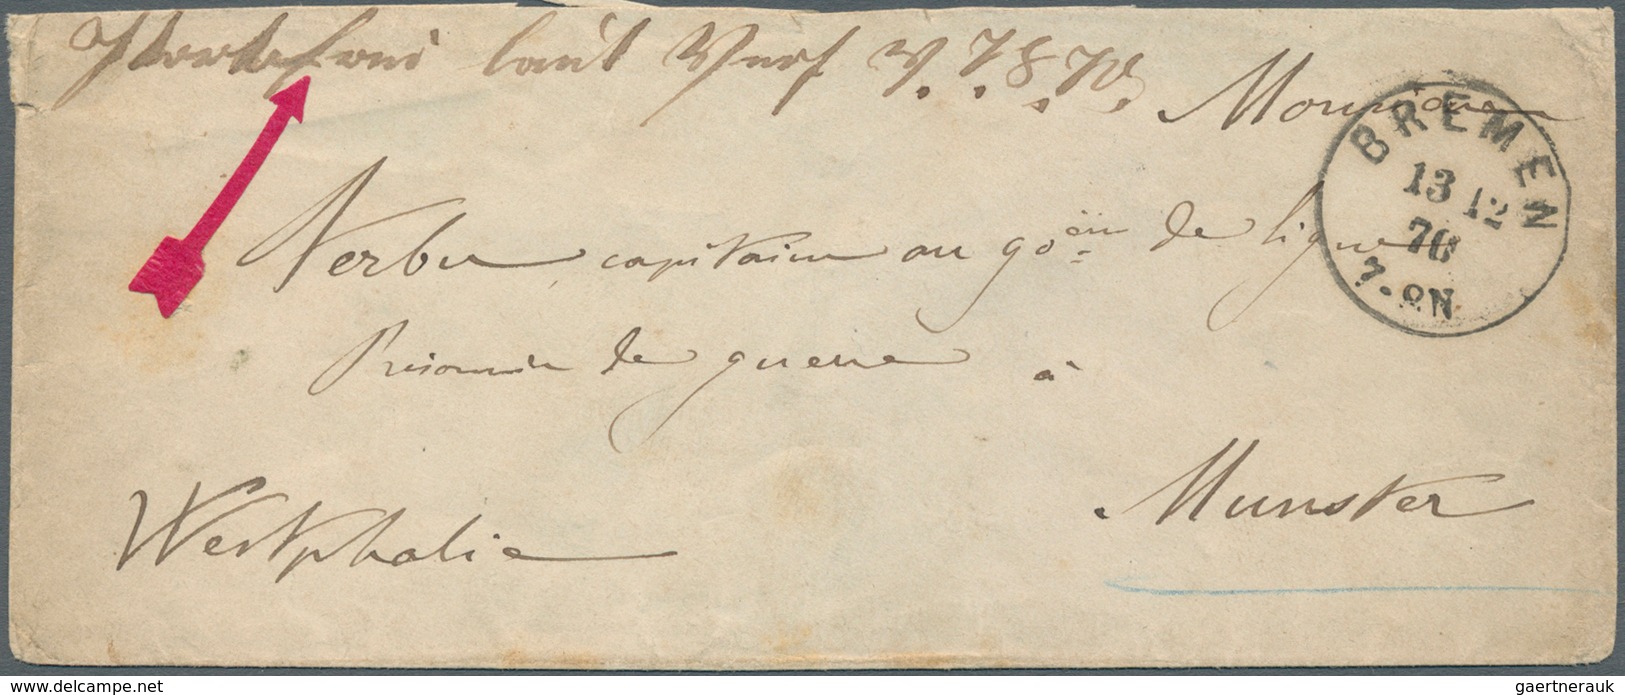 Portofrei laut Verf v. 7. 8. 70.
Monsieur
BREMEN
13 12
70
7-8N
Verbu, capitaine au 90èm de ligne
Prisonnier de guerre à
Munster
Westphalie
www.delcampe.net
gaertnerauk